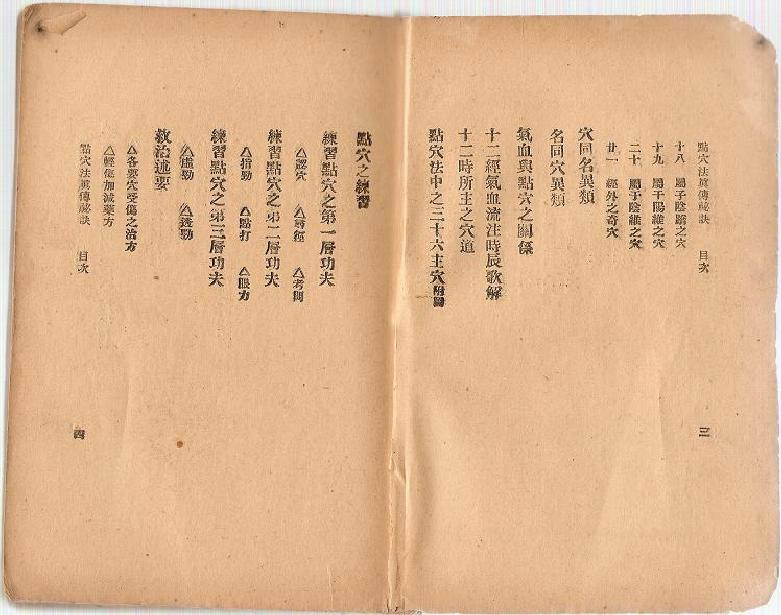 點穴法眞傳秘訣　目次
十八　屬于陰蹻之穴
十九　屬于陽維之穴
二十　屬于陰維之穴
廿一　經外之奇穴
穴同名異類
名同穴異類
氣血與點穴之關係
十二經氣血流注時辰歌解
十二時所主之穴道
點穴法中之三十六主穴附圖
三
點穴之練習
練習點穴之第一層功夫
△認穴　△尋經　△考問
練習點穴之第二層功夫
△指勁　△點打　△眼力
練習點穴之第三層功夫
△虛勁　△透勁
救治述要
△各要穴受傷之治方
△輕傷加減藥方
點穴法眞傳秘訣　目次
四